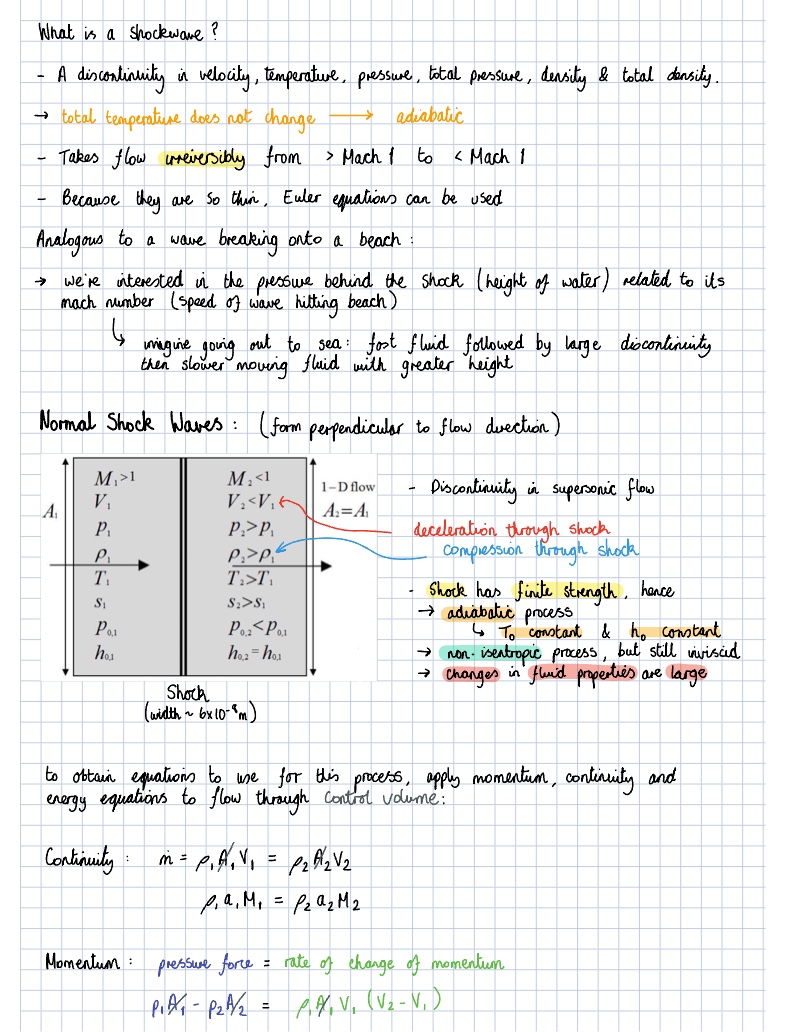 What is a shockwave?
- A discontinuity in velocity, temperature, pressure, total pressure, density & total density.
→ total temperature does not change ⟶ adiabatic
- Takes flow irreversibly from > Mach 1 to < Mach 1
- Because they are so thin, Euler equations can be used
Analogous to a wave breaking onto a beach:
→ we're interested in the pressure behind the shock (height of water) related to its
mach number (speed of wave hitting beach)
↳ imagine going out to sea: fast fluid followed by large discontinuity
then slower moving fluid with greater height
Normal Shock Waves: (form perpendicular to flow direction)
M₁>1
V₁
p₁
ρ₁
T₁
s₁
p₀,₁
h₀,₁
A₁
M₂<1
V₂<V₁
p₂>p₁
ρ₂>ρ₁
T₂>T₁
s₂>s₁
p₀,₂<p₀,₁
h₀,₂=h₀,₁
1-D flow
A₂=A₁
Shock
(width ~ 6x10⁻⁸m)
- Discontinuity in supersonic flow
deceleration through shock
compression through shock
- Shock has finite strength, hence
→ adiabatic process
↳ T₀ constant & h₀ constant
→ non-isentropic process, but still inviscid
→ changes in fluid properties are large
to obtain equations to use for this process, apply momentum, continuity and
energy equations to flow through control volume:
Continuity: ṁ = ρ₁A₁V₁ = ρ₂A₂V₂
ρ₁a₁M₁ = ρ₂a₂M₂
Momentum: pressure force = rate of change of momentum
p₁A₁ - p₂A₂ = ρ₁A₁V₁(V₂-V₁)